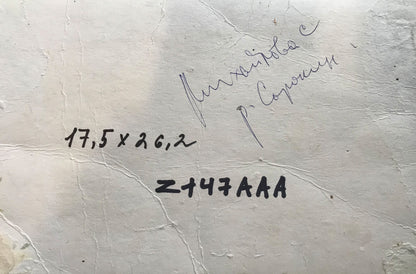 Михайлова С
р. Сорокин
17,5 x 26,2
Z147AAA